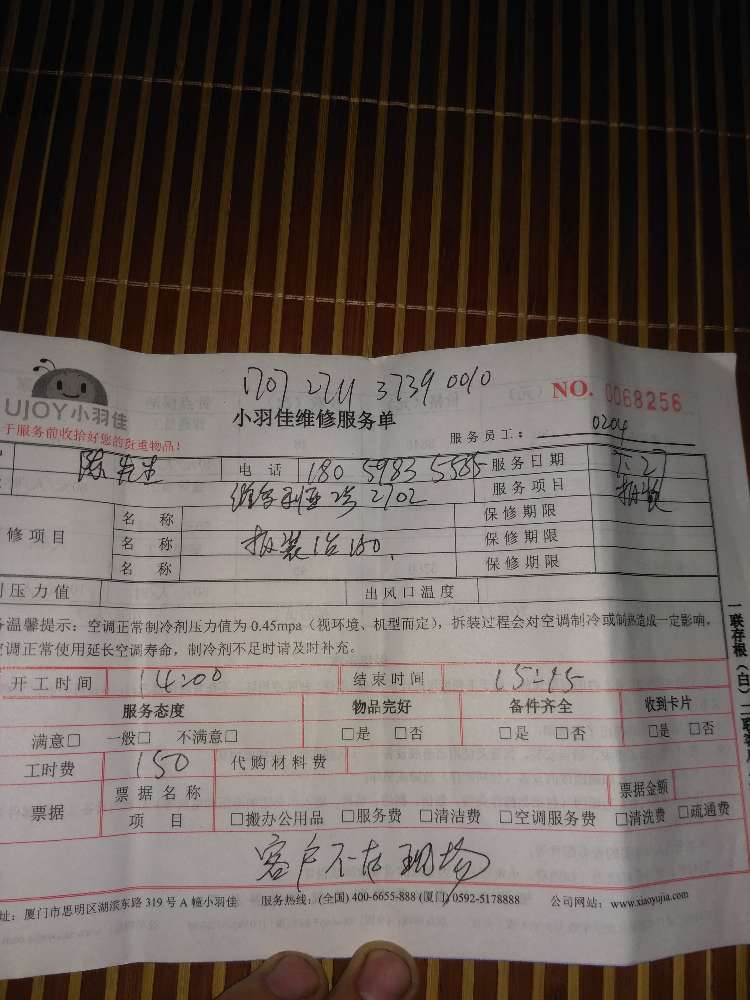 1707 2711 3739 0010
NO. 0068256
UJOY小羽佳
小羽佳维修服务单
于服务前收拾好您的贵重物品!
服务员工: 0204
陈先生 电话 180 5983 5585 服务日期
维多利亚 2702 服务项目 拆装
修项目 名称 保修期限
名称 拆装1台150. 保修期限
名称 保修期限
压力值 出风口温度
温馨提示:空调正常制冷剂压力值为 0.45mpa(视环境、机型而定),拆装过程会对空调制冷或制热造成一定影响,
调正常使用延长空调寿命,制冷剂不足时请及时补充。
开工时间 14:00 结束时间 15:15
服务态度 物品完好 备件齐全 收到卡片
满意□ 一般□ 不满意□ □是 □否 □是 □否 □是 □否
工时费 150 代购材料费
票据 票据名称 票据金额
项目 □搬办公用品 □服务费 □清洁费 □空调服务费 □清洗费 □疏通费
客户不在现场
址:厦门市思明区湖滨东路 319 号 A 幢小羽佳 服务热线:(全国) 400-6655-888 (厦门) 0592-5178888 公司网站:www.xiaoyujia.com
一联存根(白)二联客